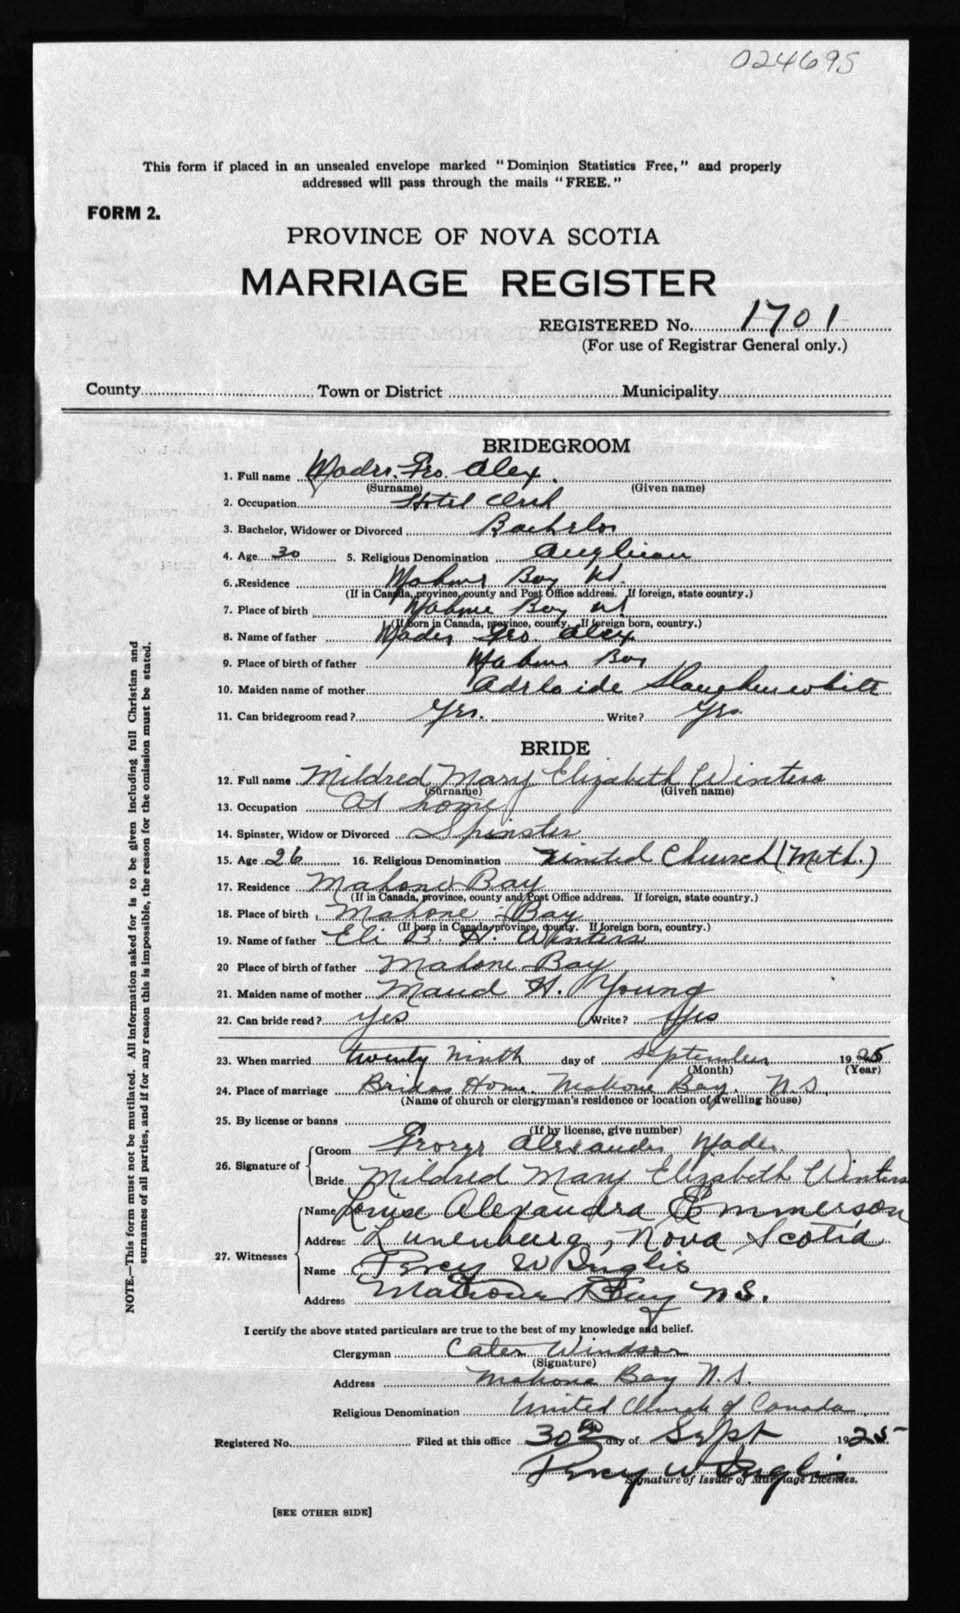 024695
This form if placed in an unsealed envelope marked "Dominion Statistics Free," and properly
addressed will pass through the mails "FREE."
FORM 2.
PROVINCE OF NOVA SCOTIA
MARRIAGE REGISTER
REGISTERED No. 1701
(For use of Registrar General only.)
County Town or District Municipality
BRIDEGROOM
1. Full name Mader. Geo. Alex.
(Surname) (Given name)
2. Occupation Hotel Clerk
3. Bachelor, Widower or Divorced Bachelor
4. Age 30 5. Religious Denomination Anglican
6. Residence Mahone Bay NS.
(If in Canada, province, county and Post Office address. If foreign, state country.)
7. Place of birth Mahone Bay NS
(If born in Canada, province, county. If foreign born, country.)
8. Name of father Mader Geo. Alex
9. Place of birth of father Mahone Bay
10. Maiden name of mother Adelaide Slaughenwhite
11. Can bridegroom read? Yes. Write? Yes.
BRIDE
12. Full name Mildred Mary Elizabeth Winters
(Surname) (Given name)
13. Occupation At home
14. Spinster, Widow or Divorced Spinster
15. Age 26 16. Religious Denomination United Church (Meth.)
17. Residence Mahone Bay
(If in Canada, province, county and Post Office address. If foreign, state country.)
18. Place of birth Mahone Bay
(If born in Canada, province, county. If foreign born, country.)
19. Name of father Eli B. H. Winters
20 Place of birth of father Mahone Bay
21. Maiden name of mother Maud H. Young
22. Can bride read? Yes Write? Yes
23. When married twenty Ninth day of September 1925
(Month) (Year)
24. Place of marriage Brides Home. Mahone Bay. N.S.
(Name of church or clergyman's residence or location of dwelling house)
25. By license or banns
(If by license, give number)
26. Signature of
Groom George Alexander Mader
Bride Mildred Mary Elizabeth Winters
27. Witnesses
Name Louise Alexandra Emmerson
Address Lunenburg, Nova Scotia
Name Percy W Inglis
Address Mahone Bay N.S.
I certify the above stated particulars are true to the best of my knowledge and belief.
Clergyman Cater Windsor
(Signature)
Address Mahone Bay N.S.
Religious Denomination United Church of Canada
Registered No. Filed at this office 30th day of Sept 1925
Percy W Inglis
Signature of Issuer of Marriage Licenses.
[SEE OTHER SIDE]
NOTE.—This form must not be mutilated. All information asked for is to be given including full Christian and
surnames of all parties, and if for any reason this is impossible, the reason for the omission must be stated.